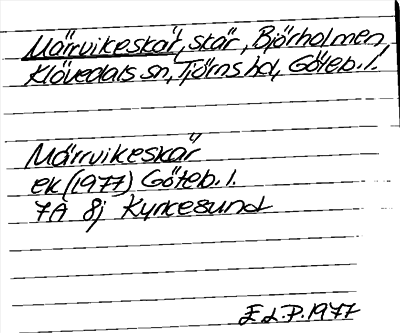 Mörrvikeskär, skär, Björholmen,
Klövedals sn, Tjörns hd, Göteb. l.
Mörrvikeskär
ek (1977) Göteb. l.
7A 8j Kyrkesund
E L.P. 1977